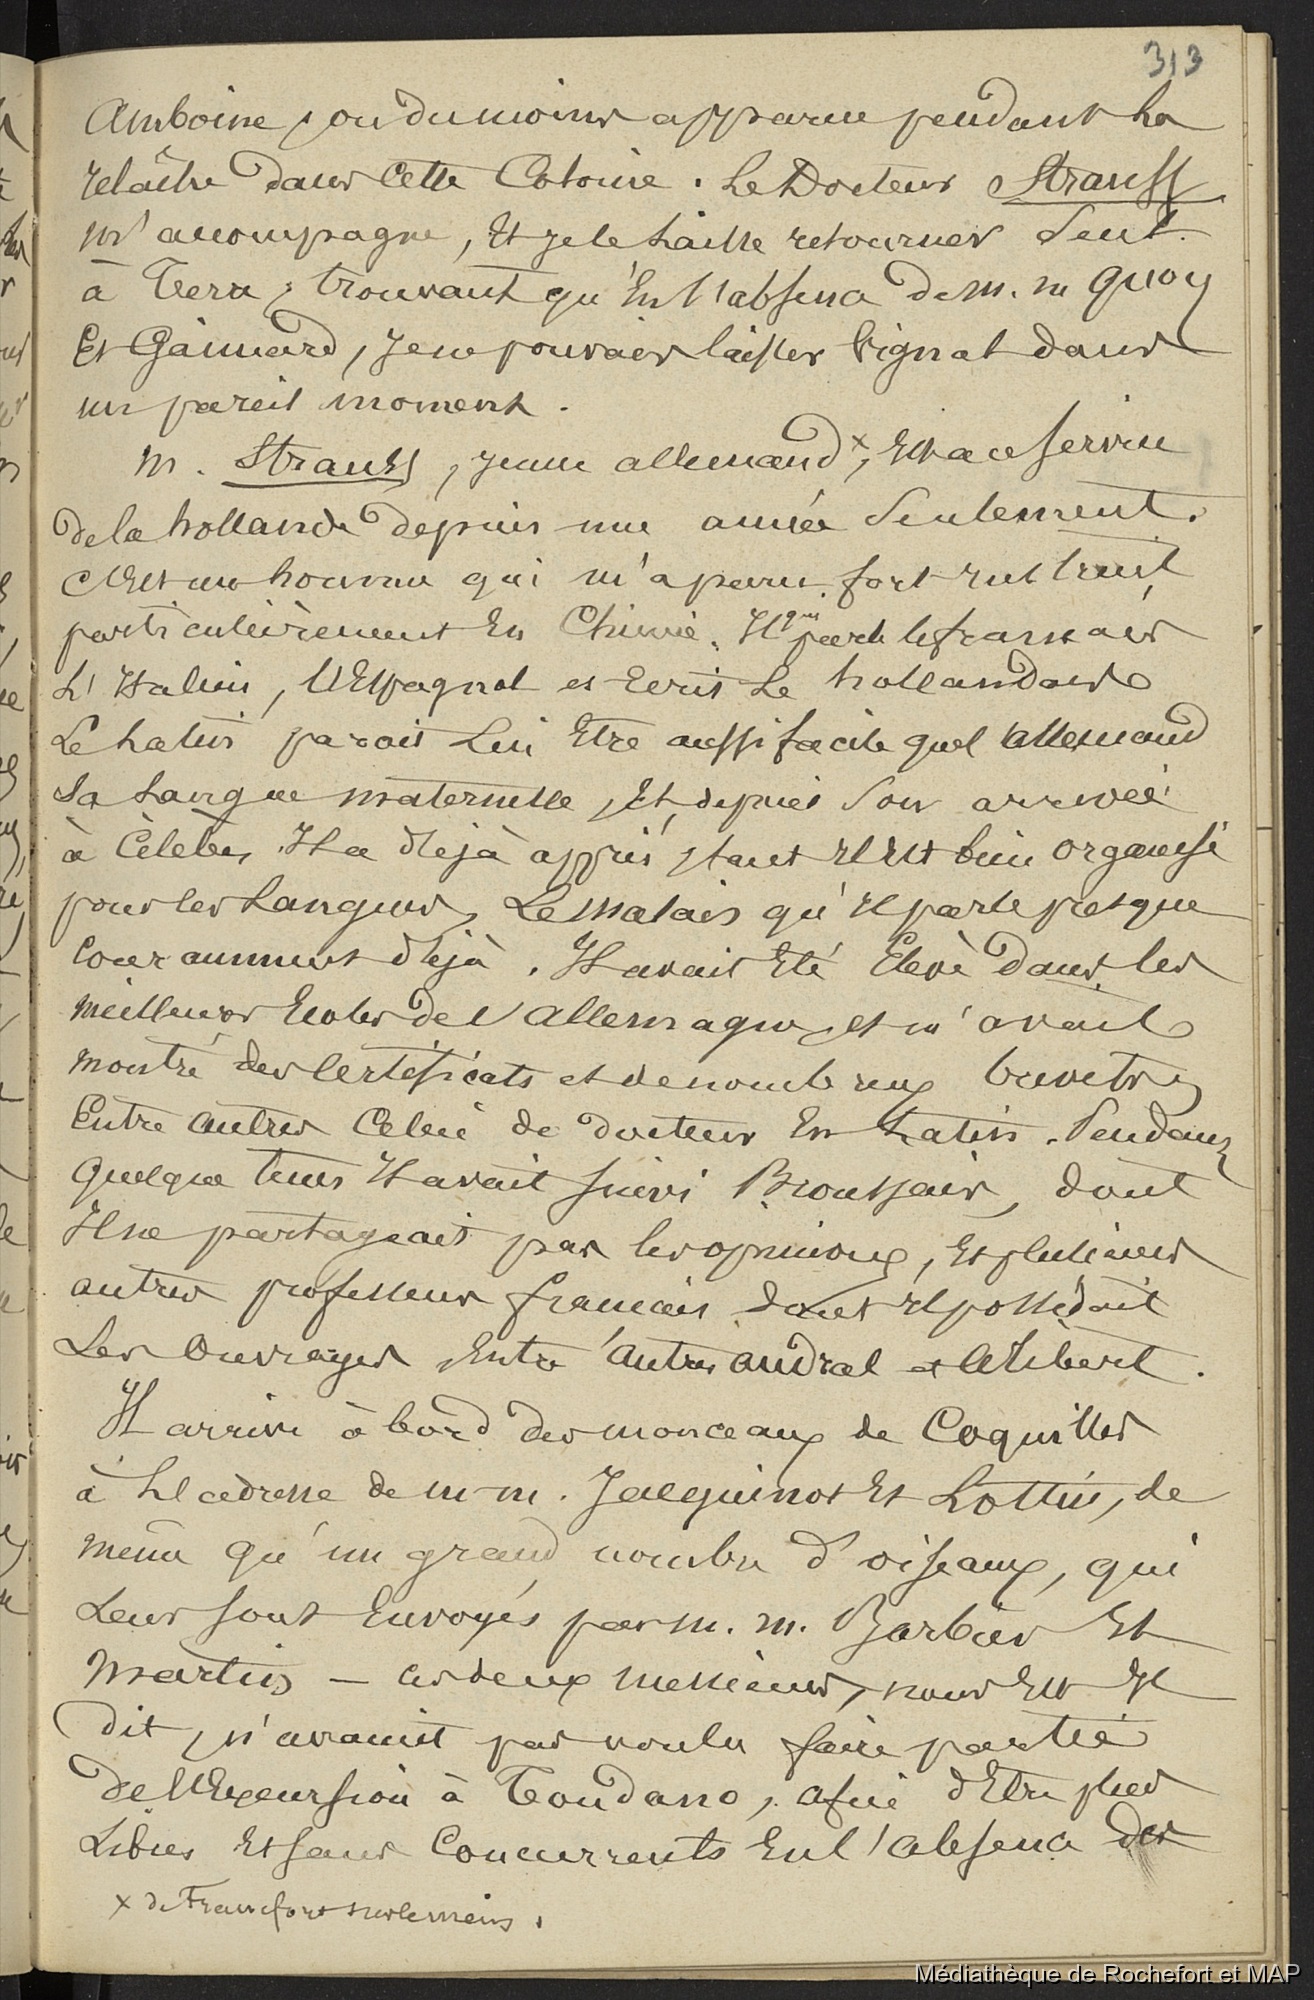 313
Amboine, ou du moins apparue pendant la
relâche dans cette Colonie. Le Docteur Strauss
m'accompagne, Et je le Laisse retourner Seul
à Terre, trouvant qu'En l'absence de m. m Quoy
Et Gaimard, Je ne pouvais laisser Vignal dans
un pareil moment.
M. Strauss, jeune allemand x, Est au service
de la hollande depuis une année Seulement.
C'Est un homme qui m'a paru fort instruit,
particulièrement En Chimie. Il qui parle le français
L'Italien, l'Espagnol et Ecrit Le hollandais
Le Latin parait Lui Etre aussi facile que l'allemand
Sa Langue maternelle, Et depuis Son arrivée
à Célèbes Il a déjà appris, tant il Est bien organisé
pour les Langues, Le Malais qu'il parle presque
Couramment déjà. Il avait Eté Elevé dans les
meilleures Ecoles de l'allemagne, et m'avait
montré des Certificats et de nombreux brevets,
Entre autres Celui de docteur En Latin. Pendant
quelque tems Il avait suivi Broussais, dont
Il ne partageait pas les opinions, Et plusieurs
autres professeurs français dont il possédait
Les Ouvrages, Entr'autres andral et Alibert.
Il arrive à bord des monceaux de Coquilles
à L'adresse de m. m. Jacquinot Et Lottin, de
même qu'un grand nombre d'oiseaux, qui
Leur sont Envoyés par m. m. Barbier Et
Martin — Ces deux Messieurs, nous Est Il
dit, n'avaient pas voulu faire partie
de l'Excursion à Tondano, afin d'Etre plus
Libres Et sans Concurrents En l'absence des
x de Francfort sur le mein.
Médiathèque de Rochefort et MAP